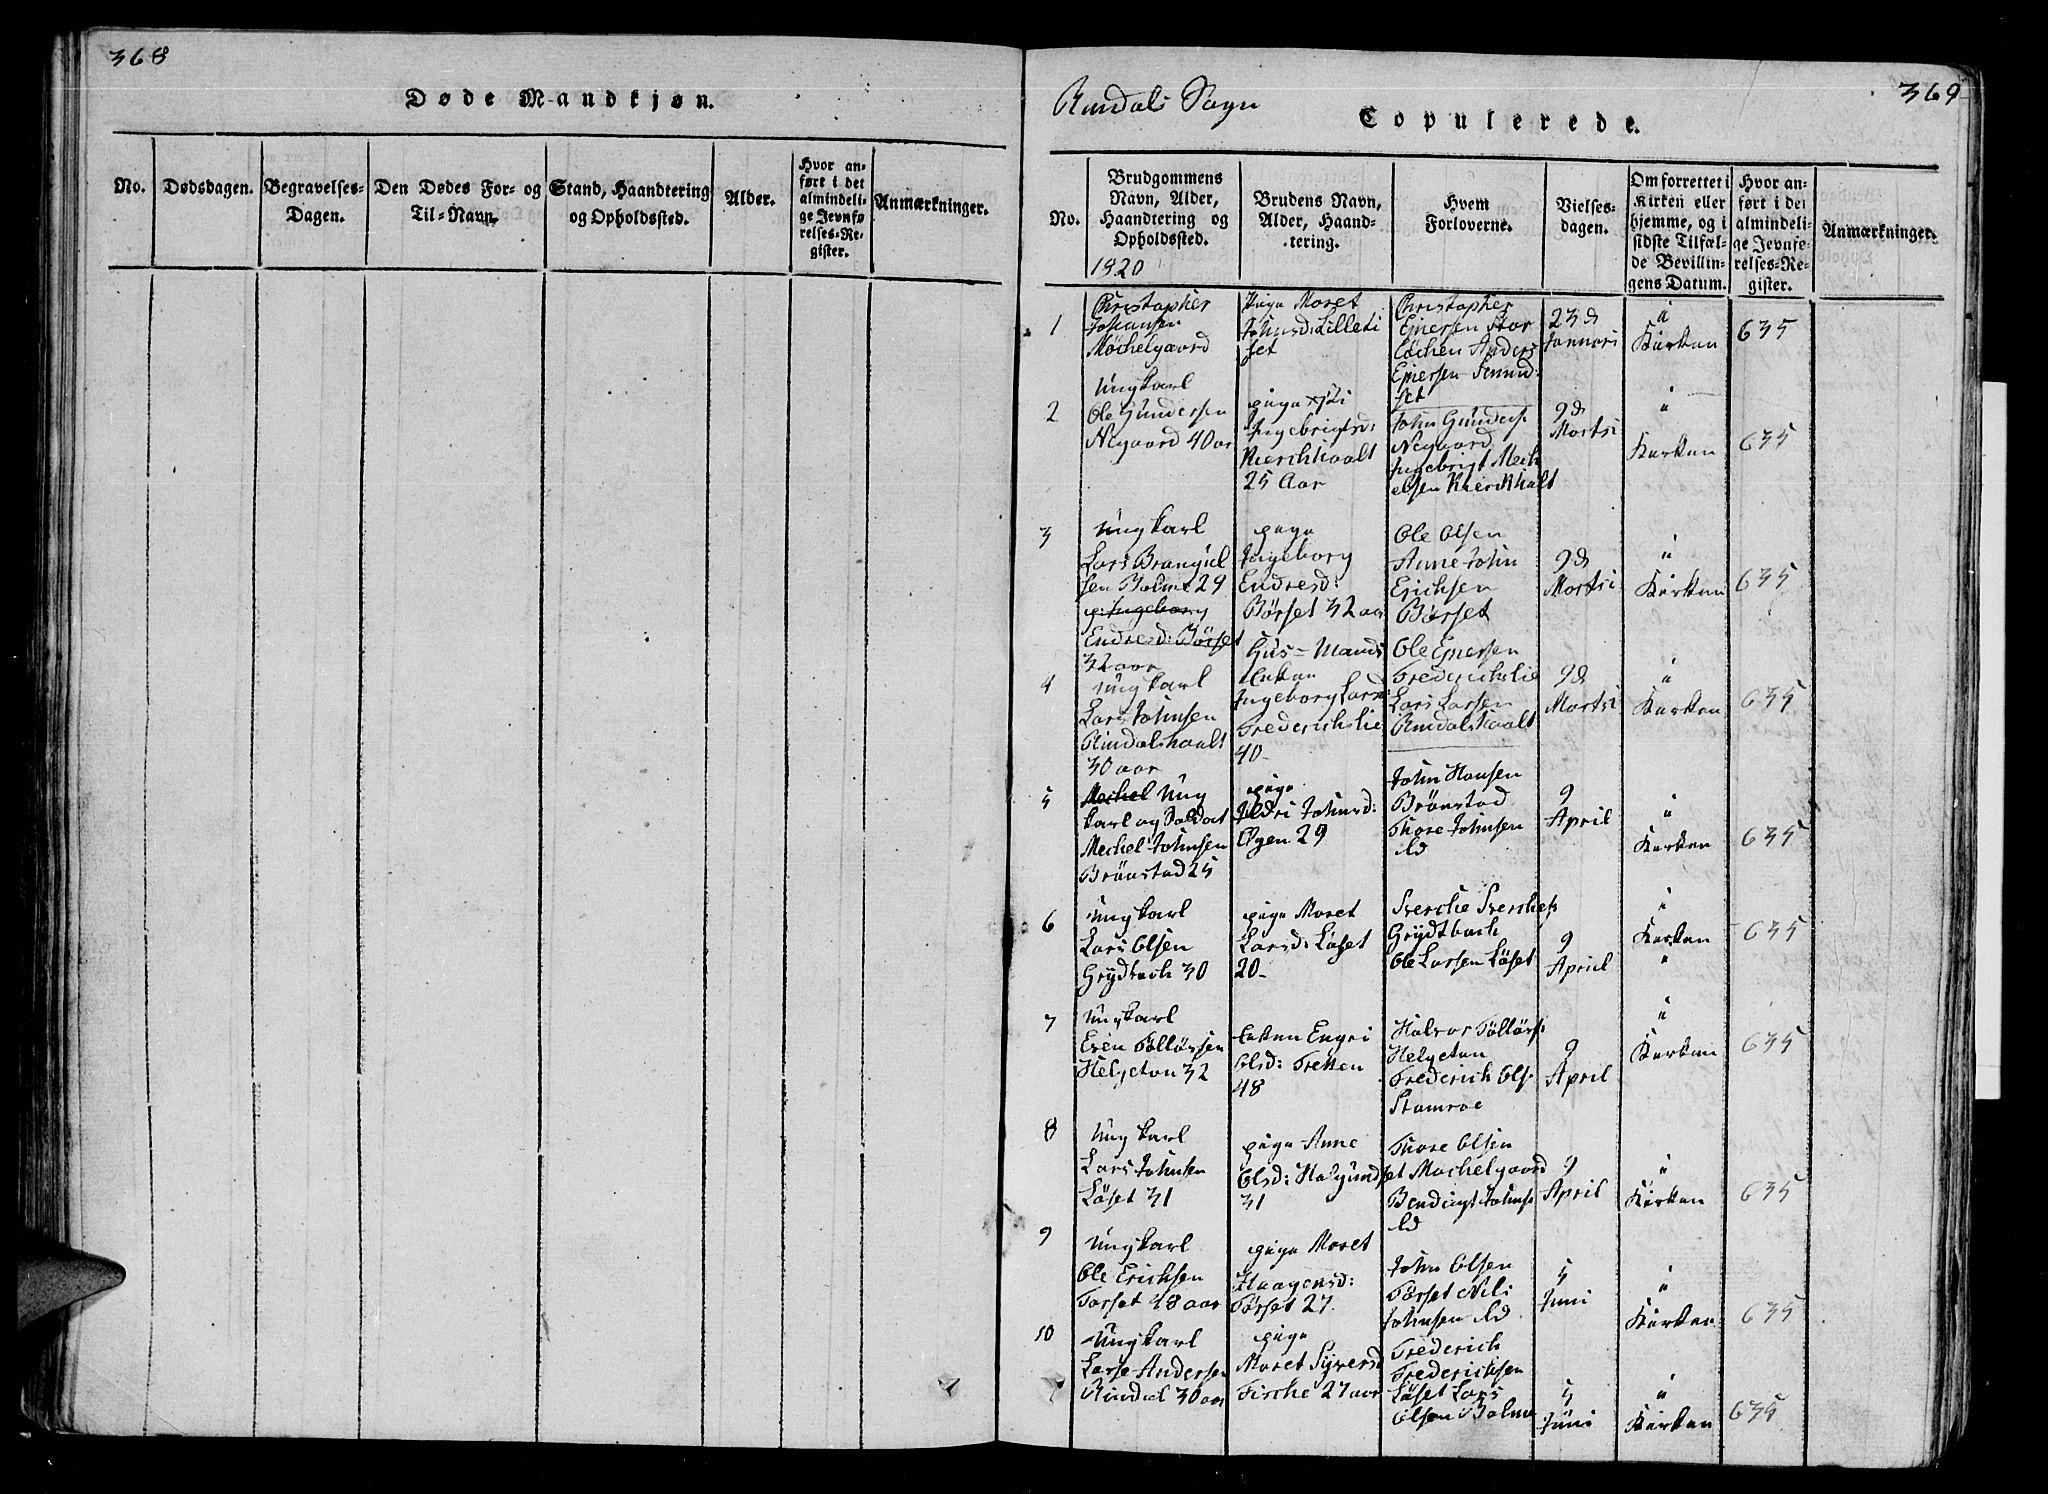 368
Døde Mandkjøn.
No.
Dødsdagen.
Begravelses-
Dagen.
Den Dødes For- og
Til-Navn.
Stand, Haandtering
og Opholdssted.
Alder.
Hvor an-
ført i det
almindeli-
ge Jevnfø
relses-Re-
gister.
Anmærkninger.
369
Rindals Sogn
Copulerede.
No.
Brudgommens
Navn, Alder,
Haandtering og
Opholdssted.
Brudens Navn,
Alder, Haand-
tering.
Hvem
Forloverne.
Vielses-
dagen.
Om forrettet i
Kirken eller
hjemme, og i
sidste Tilfæl-
de Bevillin-
gens Datum.
Hvor an-
ført i det
almindeli-
ge Jevnfø-
relses-Re-
gister.
Anmærkninger.
1820
1
Christopher
Johansen
Møchelgaard
Piga Maret
Johnsd: Lilleti
set
Christopher
Ejnersen Stor
Løchen Anders
Ejnersen
set
23d
Januari
i
Kirken
635
2
Ungkarl
Ole Gundersen
Negaard 40 aar
piga
Ingebrigtsd:
25 Aar
John Gunders
Negaard
Ingebrigt Mech
elsen
9d
Martsi
i
Kirken
635
3
Ungkarl
Lars Brangiel
sen Bolme 29
p: Ingeborg
Endresd: Børset
32 aar
piga
Ingeborg
Endresd:
Børset 32 aar
Ole Olsen
Aune John
Erichsen
Børset
9d
Martsi
i
Kirken
635
4
Ungkarl
Lars Johnsen
Rindalshaalt
30 aar
Hus-Mands
Enken
Ingeborg Larsd
Frederichslie
40
Ole Ejnersen
Frederichslie
Lars Larsen
Rindalshaalt
9d
Martsi
i
Kirken
635
5
Mechel Ung
karl og Soldat
Mechel Johnsen
Brönstad 25
piga
Ildri Johnsd:
Øgen 29
John Hansen
Brönstad
Thore Johnsen
ld
9
April
i
Kirken
635
6
Ungkarl
Lars Olsen
Grydtbach 30
piga Maret
Larsd: Løset
20
Sverche Sverchels
Grydtbach
Ole Larsen Løset
9
April
i
Kirken
635
7
Ungkarl
Even Tolløfsen
Helgeton 32
Enken Engri
Olsd: Tretten
48
Halvor Tolløfs:
Helgeton
Frederich Ols:
Stomroe
9
April
i
Kirken
635
8
Ungkarl
Lars Johnsen
Løset 31
piga Anne
Olsd: Halgundset
31
Thore Olsen
Mochelgaard
Bendigt Johns
ld
9
April
i
Kirken
635
9
Ungkarl
Ole Erichsen
Torset 48 aar
piga Maret
Haagensd:
Torset 27
John Olsen
Torset Nils
Johnsen ld
5
Juni
i
Kirken
635
10
Ungkarl
Larse Andersen
Rindal 30 aar
piga
Maret Syversd
Fische 27 aar
Frederich
Frederichsen
Løset Lars
Olsen Bolme
5
Juni
i
Kirken
635